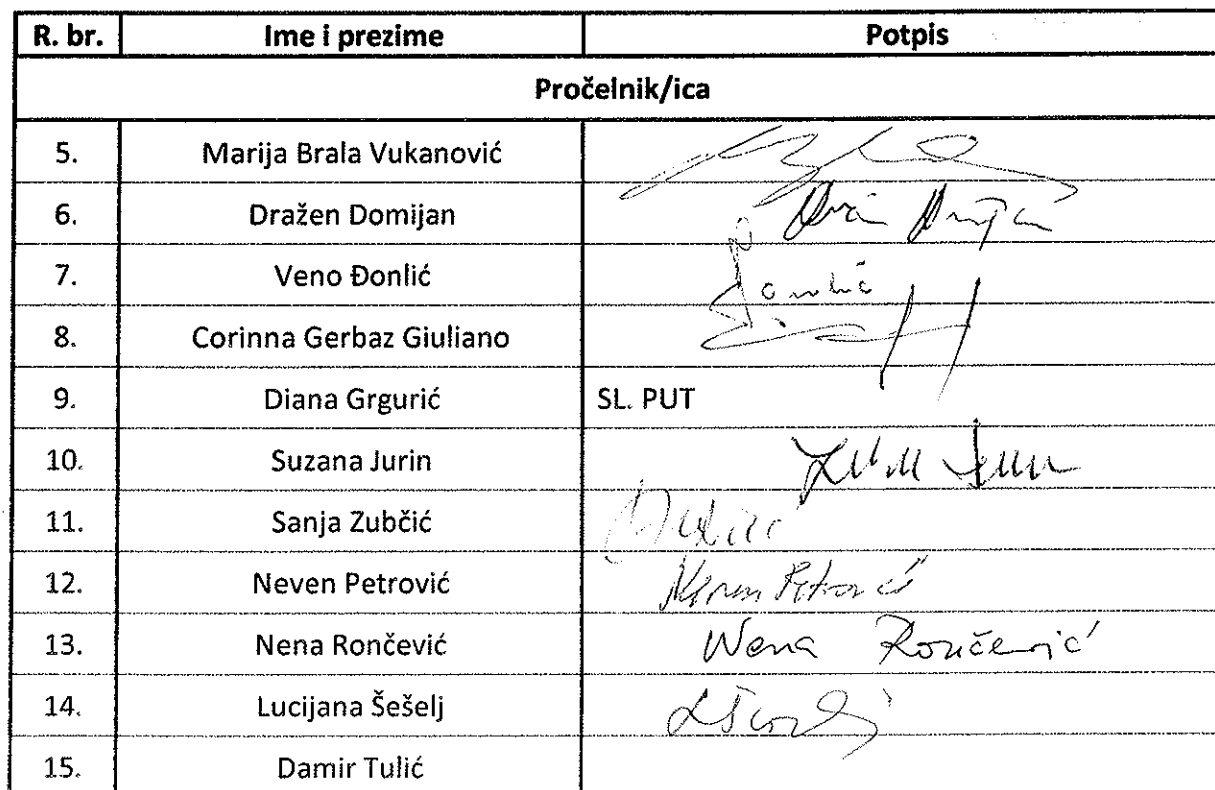 R. br. Ime i prezime Potpis
Pročelnik/ica
5. Marija Brala Vukanović
6. Dražen Domijan
7. Veno Đonlić
8. Corinna Gerbaz Giuliano
9. Diana Grgurić SL. PUT
10. Suzana Jurin
11. Sanja Zubčić
12. Neven Petrović Neven Petrović
13. Nena Rončević Nena Rončević
14. Lucijana Šešelj
15. Damir Tulić